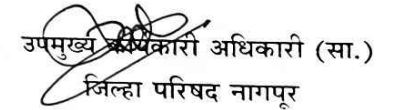 उपमुख्य कार्यकारी अधिकारी (सा.)
जिल्हा परिषद नागपूर